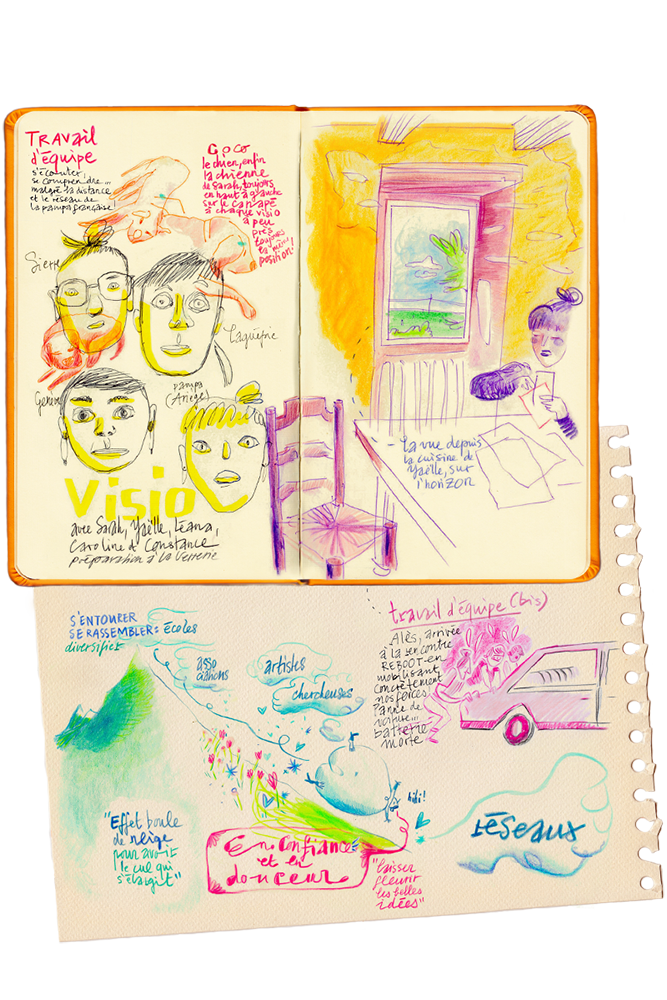 Travail
d'équipe
s'écouter,
se comprendre...
malgré la distance
et le réseau de
la pampa française!
Coco
le chien, enfin
la chienne
de Sarah, toujours
en haut à gauche
sur le canapé
à chaque visio
à peu
près
toujours
la même
position!
pampa
(Ariège)
Visio
avec Sarah, Yaëlle, Léana,
Caroline & Constance
préparation à la Verrerie
- la vue depuis
la cuisine de
Yaëlle, sur
l'horizon
S'ENTOURER
SE RASSEMBLER: écoles
diversifier
asso
ciations
artistes
chercheuses
travail d'équipe (bis)
Alès, arrivée
à la rencontre
REBOOT en
mobilisant
concrètement
nos forces
panne de
voiture...
batterie
morte
"Effet boule
de neige
pour avoir
le cul qui
s'élargit"
hihi!
En confiance
et en
douceur
"laisser
fleurir
les belles
idées"
Réseaux